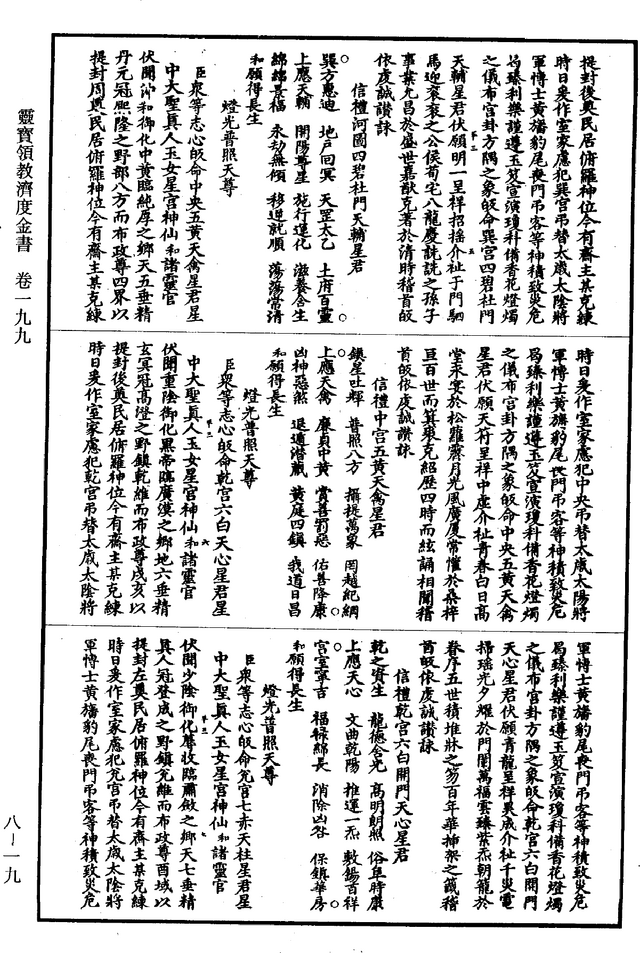 靈寶領教濟度金書　卷一九九
八—一九
提封後奠民居俯羅神位今有齋主某克練
時日爰作室家慮犯巽宮弔替太歲太陰將
軍博士黃旛豹尾喪門弔客等神積致災危
曷臻利樂謹遵玉笈宣演瓊科備香花燈燭
之儀布宮卦方隅之象皈命巽宮四碧杜門
天輔星君伏願明一呈祥招搖介祉于門駟
馬迎袞袞之公侯荀宅八龍慶詵詵之孫子
事業尤昌於盛世嘉猷克著於清時稽首皈
依虔誠讚詠
信禮河圖四碧杜門天輔星君
巽方惠迪　地戶回冥　天罡太乙　土府百靈
上應天輔　開陽尊星　施行運化　滋養含生
綿綿景福　永劫無傾　移逆就順　蕩蕩常清
和願得長生
燈光普照天尊
臣眾等志心皈命中央五黃天禽星君星
中大聖真人玉女星宮神仙和諸靈官
伏聞沖和御化中黃臨純厚之鄉天五垂精
丹元冠熙隆之野部八方而布政尊四界以
提封周奠民居俯羅神位今有齋主某克練
時日爰作室家慮犯中央弔替太歲太陽將
軍博士黃旛豹尾喪門弔客等神積致災危
曷臻利樂謹遵玉笈宣演瓊科備香花燈燭
之儀布宮卦方隅之象皈命中央五黃天禽
星君伏願天符呈祥中虛介祉青春白日高
堂永宴於松蘿霽月光風廣廈常懽於桑梓
亘百世而箕裘克紹歷四時而絃誦相聞稽
首皈依虔誠讚詠
信禮中宮五黃天禽星君
鎮星吐輝　普照八方　攝提萬象　罔越紀綱
上應天禽　廉貞中黃　賞善罰惡　佑善降康
凶神惡煞　退遁潛藏　黃庭四鎮　我道日昌
和願得長生
燈光普照天尊
臣眾等志心皈命乾宮六白天心星君星
中大聖真人玉女星宮神仙和諸靈官
伏聞重陰御化黑帝臨廣漠之鄉地六垂精
玄冥冠高澄之野鎮乾維而布政尊戌亥以
提封後奠民居俯羅神位今有齋主某克練
時日爰作室家慮犯乾宮弔替太歲太陰將
軍博士黃旛豹尾喪門弔客等神積致災危
曷臻利樂謹遵玉笈宣演瓊科備香花燈燭
之儀布宮卦方隅之象皈命乾宮六白開門
天心星君伏願青龍呈祥異成介祉千災電
掃瑤光夕耀於門閭萬福雲臻紫炁朝籠於
眷序五世積堆牀之笏百年華插架之籤稽
首皈依虔誠讚詠
信禮乾宮六白開門天心星君
乾之資生　龍德含光　高明朗照　俗阜時康
上應天心　文曲乾陽　推運一炁　敷錫百祥
宮室寧吉　福祿綿長　消除凶咎　保鎮華房
和願得長生
燈光普照天尊
臣眾等志心皈命兌宮七赤天柱星君星
中大聖真人玉女星宮神仙和諸靈官
伏聞少陰御化蓐收臨肅斂之鄉天七垂精
真人冠登成之野鎮兌維而布政尊酉域以
提封左奠民居俯羅神位今有齋主某克練
時日爰作室家慮犯兌宮弔替太歲太陰將
軍博士黃旛豹尾喪門弔客等神積致災危